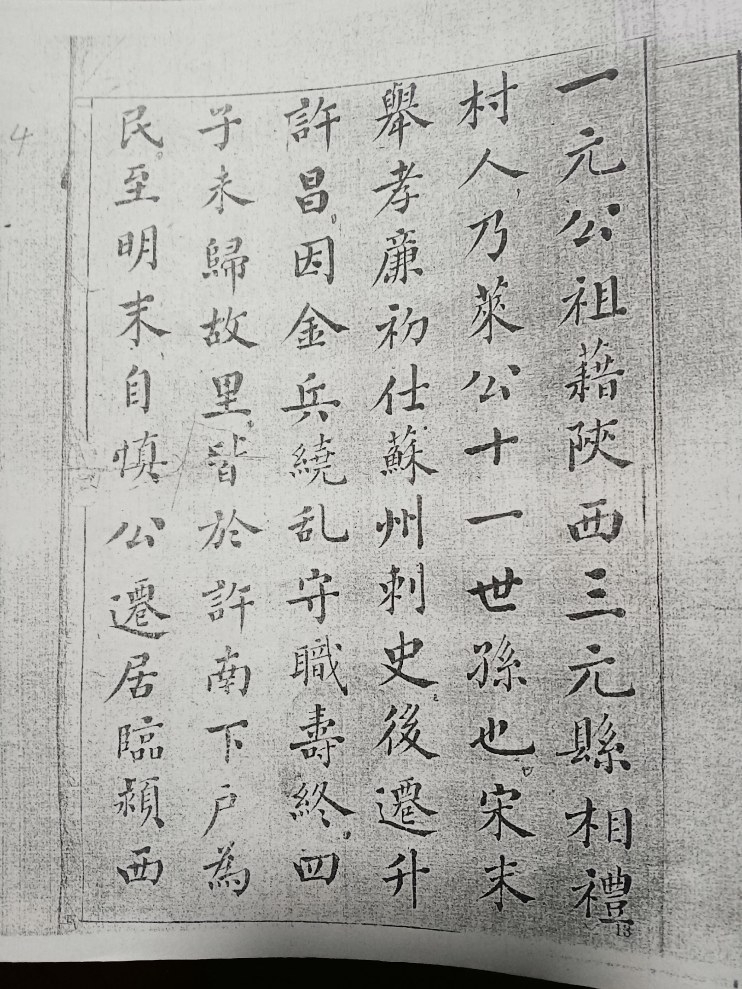 一元公祖藉陝西三元縣相禮
村人乃萊公十一世孫也宋末
舉孝廉初仕蘇州刺史後遷升
許昌因金兵繞乱守職壽終四
子未歸故里皆於許南下戶為
民至明末自慎公遷居臨潁西
13
4